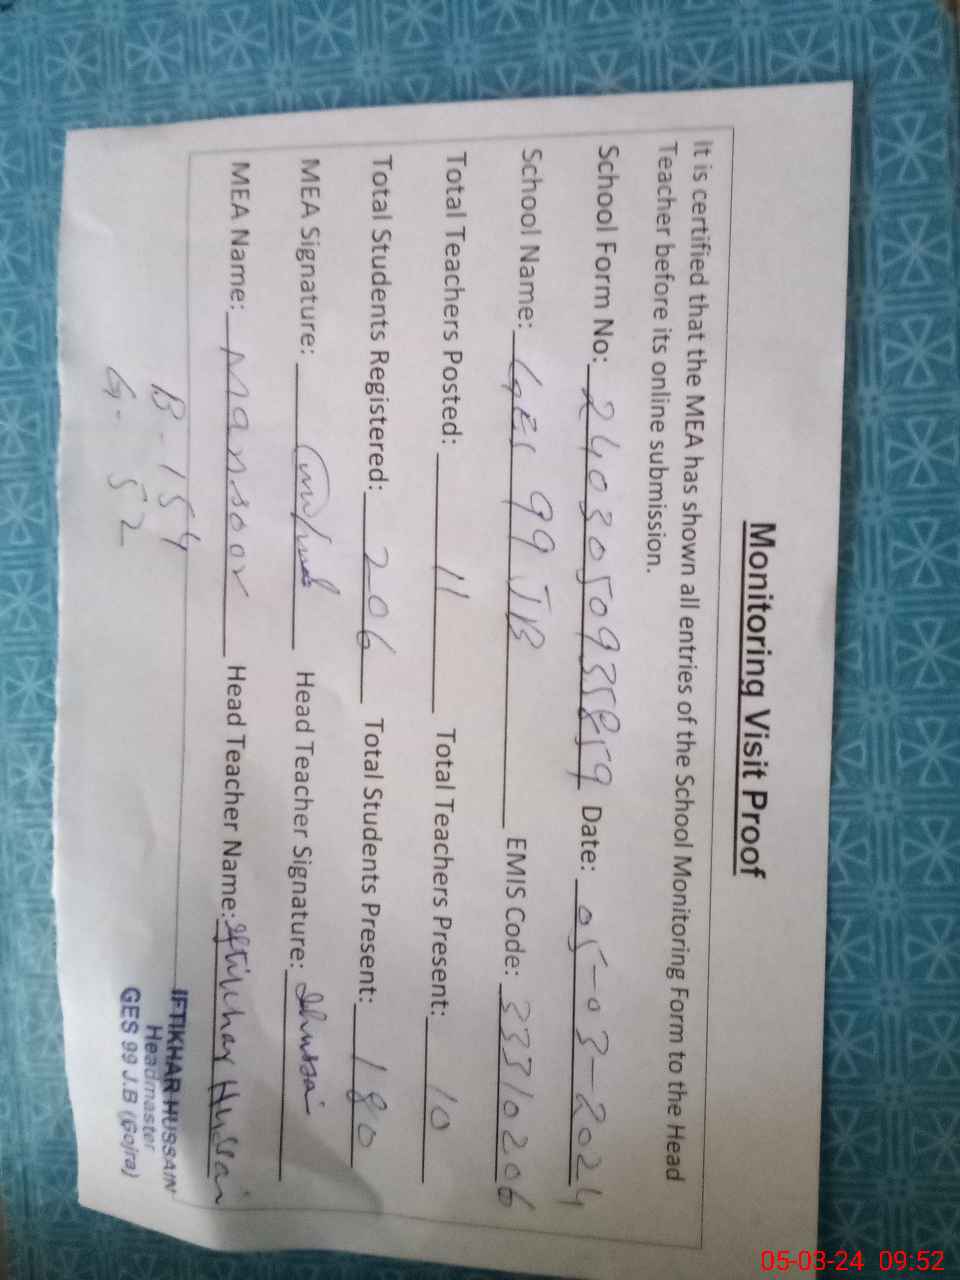 Monitoring Visit Proof
It is certified that the MEA has shown all entries of the School Monitoring Form to the Head
Teacher before its online submission.
School Form No: 2403050935859 Date: 05-03-2024
School Name: GES 99 JB EMIS Code: 33310206
Total Teachers Posted: 11 Total Teachers Present: 10
Total Students Registered: 206 Total Students Present: 180
MEA Signature: Head Teacher Signature:
MEA Name: Mansoor Head Teacher Name: Iftikhar Hussain
B-154
G-52
IFTIKHAR HUSSAIN
Headmaster
GES 99 J.B (Gojra)
05-03-24 09:52